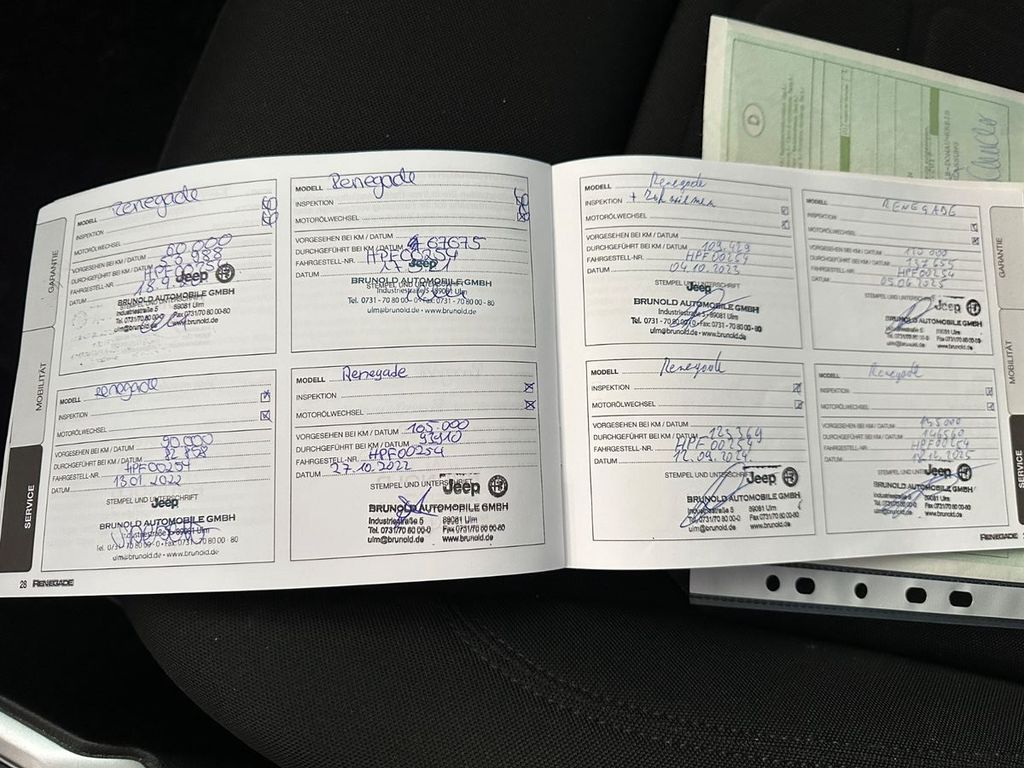 GARANTIE
MOBILITÄT
SERVICE
MODELL Renegade
INSPEKTION
MOTORÖLWECHSEL
VORGESEHEN BEI KM / DATUM 60.000
DURCHGEFÜHRT BEI KM / DATUM
FAHRGESTELL-NR.
DATUM
Jeep
STEMPEL UND UNTERSCHRIFT
BRUNOLD AUTOMOBILE GMBH
Industriestraße 5 89081 Ulm
Tel. 0731/70 80 00-0 Fax 0731/70 80 00-80
ulm@brunold.de www.brunold.de
MODELL Renegade
INSPEKTION
MOTORÖLWECHSEL
VORGESEHEN BEI KM / DATUM
DURCHGEFÜHRT BEI KM / DATUM 67675
FAHRGESTELL-NR. HPF00254
DATUM
Jeep
BRUNOLD AUTOMOBILE GMBH
Industriestraße 5 · 89081 Ulm
Tel. 0731 - 70 80 00-0 · Fax 0731 - 70 80 00 - 80
MODELL Renegade
INSPEKTION
MOTORÖLWECHSEL
VORGESEHEN BEI KM / DATUM 90.000
DURCHGEFÜHRT BEI KM / DATUM
FAHRGESTELL-NR. HPF00254
DATUM 13.01.2022
STEMPEL UND UNTERSCHRIFT
Jeep
BRUNOLD AUTOMOBILE GMBH
Industriestraße 5 · 89081 Ulm
Tel. 0731 - 70 80 00-0 · Fax 0731 - 70 80 00 - 80
ulm@brunold.de · www.brunold.de
MODELL Renegade
INSPEKTION
MOTORÖLWECHSEL
VORGESEHEN BEI KM / DATUM 105.000
DURCHGEFÜHRT BEI KM / DATUM
FAHRGESTELL-NR. HPF00254
DATUM 27.10.2022
STEMPEL UND UNTERSCHRIFT
Jeep
BRUNOLD AUTOMOBILE GMBH
Industriestraße 5 89081 Ulm
Tel. 0731/70 80 00-0 Fax 0731/70 80 00-80
ulm@brunold.de www.brunold.de
28 RENEGADE
MODELL Renegade
INSPEKTION
MOTORÖLWECHSEL
VORGESEHEN BEI KM / DATUM
DURCHGEFÜHRT BEI KM / DATUM 109.429
FAHRGESTELL-NR. HPF00254
DATUM 04.10.2023
STEMPEL UND UNTERSCHRIFT
Jeep
BRUNOLD AUTOMOBILE GMBH
Industriestraße 5 · 89081 Ulm
Tel. 0731 - 70 80 00-0 · Fax 0731 - 70 80 00- 80
ulm@brunold.de · www.brunold.de
MODELL RENEGADE
INSPEKTION
MOTORÖLWECHSEL
VORGESEHEN BEI KM / DATUM
DURCHGEFÜHRT BEI KM / DATUM
FAHRGESTELL-NR. HPF00254
DATUM 05.06.2025
STEMPEL UND UNTERSCHRIFT
Jeep
BRUNOLD AUTOMOBILE GMBH
Industriestraße 5 89081 Ulm
Tel. 0731/70 80 00-0 Fax 0731/70 80 00-80
ulm@brunold.de www.brunold.de
MODELL Renegade
INSPEKTION
MOTORÖLWECHSEL
VORGESEHEN BEI KM / DATUM
DURCHGEFÜHRT BEI KM / DATUM 123369
FAHRGESTELL-NR. HPF00254
DATUM 12.09.2024
STEMPEL UND UNTERSCHRIFT
Jeep
BRUNOLD AUTOMOBILE GMBH
Industriestraße 5 89081 Ulm
Tel. 0731/70 80 00-0 Fax 0731/70 80 00-80
ulm@brunold.de www.brunold.de
MODELL Renegade
INSPEKTION
MOTORÖLWECHSEL
VORGESEHEN BEI KM / DATUM
DURCHGEFÜHRT BEI KM / DATUM 146560
FAHRGESTELL-NR. HPF00254
DATUM
STEMPEL UND UNTERSCHRIFT
Jeep
BRUNOLD AUTOMOBILE GMBH
Industriestraße 5 89081 Ulm
Tel. 0731/70 80 00-0 Fax 0731/70 80 00-80
ulm@brunold.de www.brunold.de
RENEGADE
GARANTIE
MOBILITÄT
SERVICE
D